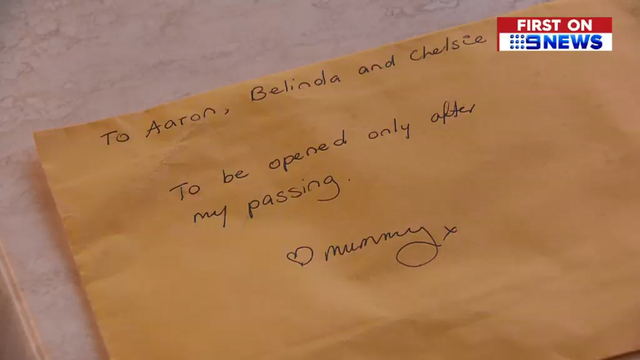 FIRST ON
9NEWS
To Aaron, Belinda and Chelsie
To be opened only after
my passing.
♡ mummy x